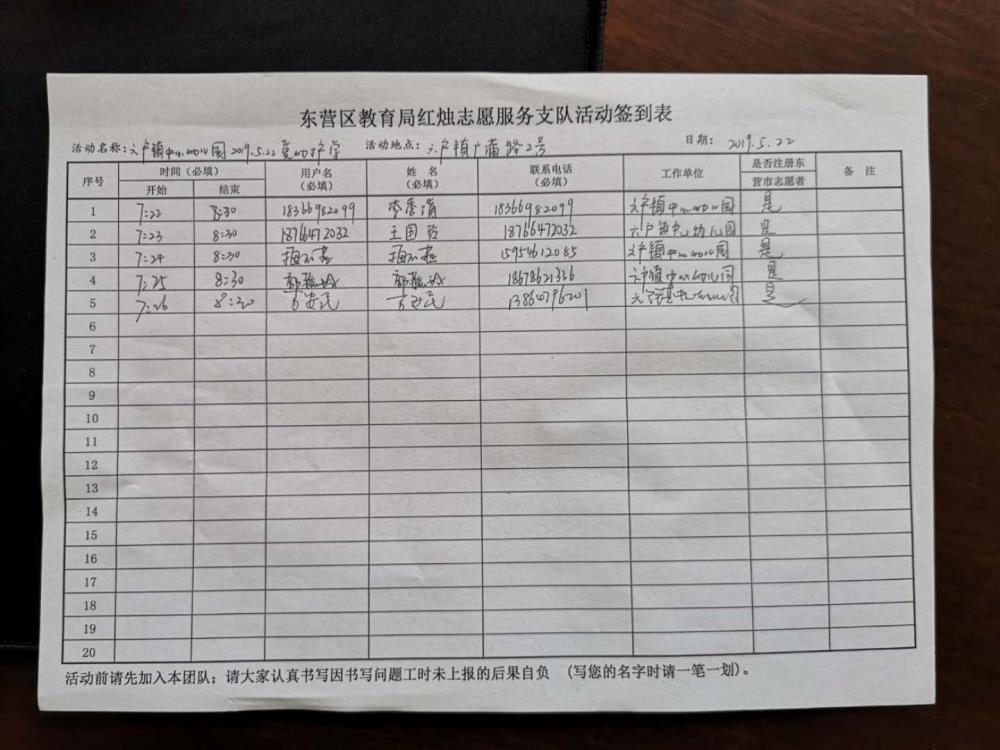 东营区教育局红烛志愿服务支队活动签到表
活动名称：六户镇中心幼儿园2019.5.22爱心护学 活动地点：六户镇广蒲路2号 日期：2019.5.22
序号 时间（必填） 用户名（必填） 姓名（必填） 联系电话（必填） 工作单位 是否注册东营市志愿者 备注
开始 结束
1 7:22 8:30 18366982099 李秀清 18366982099 六户镇中心幼儿园 是
2 7:23 8:30 18766472032 王国 18766472032 六户镇中心幼儿园 是
3 7:24 8:30 15954612085 六户镇中心幼儿园 是
4 7:25 8:30 18678621326 六户镇中心幼儿园 是
5 7:26 8:30 13864796201 六户镇中心幼儿园 是
6
7
8
9
10
11
12
13
14
15
16
17
18
19
20
活动前请先加入本团队；请大家认真书写因书写问题工时未上报的后果自负 （写您的名字时请一笔一划）。